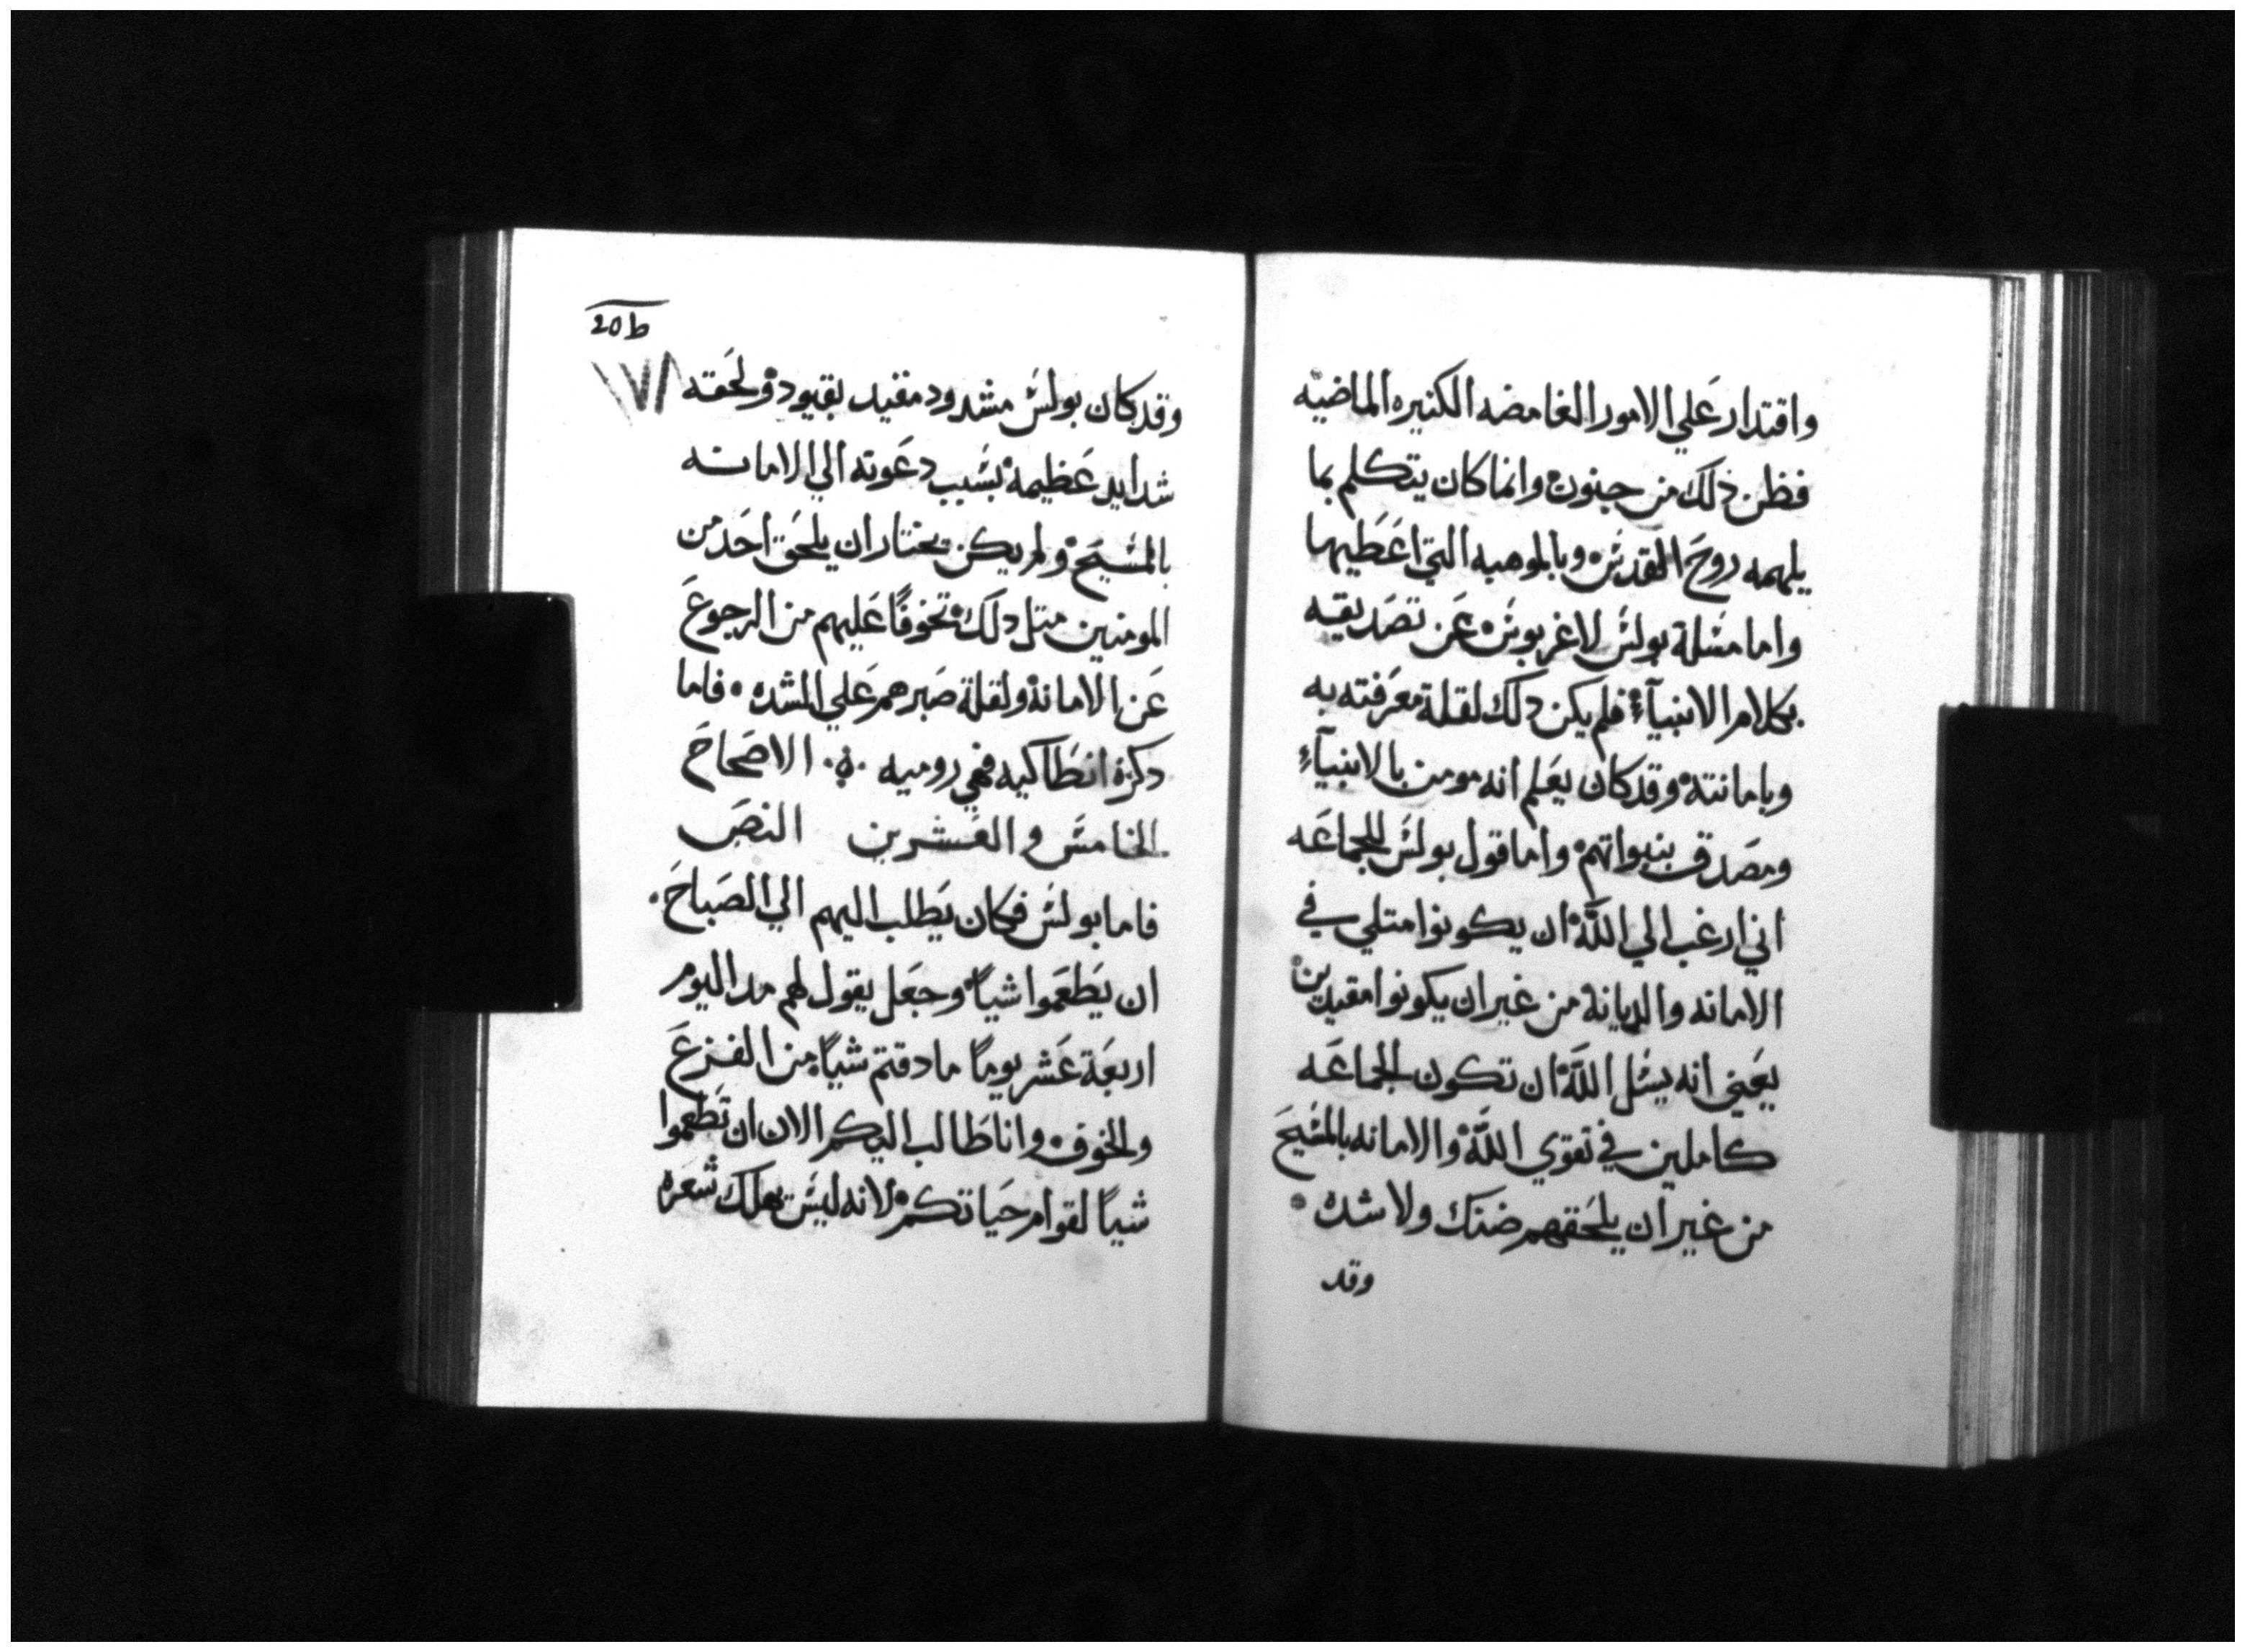 واقتدار علي الامور الغامضه الكثيره الماضيه
فظن ذلك من جنون وانما كان يتكلم بما
يلهمه روح القدس وبالموهبه التي اعطيها
واما مسلة بولس لاغربوس عن تصديقه
بكلام الانبيآء فلم يكن دلك لقلة معرفته به
وبامانته وقد كان يعلم انه مومن بالانبيآء
ومصدق بنبواتهم واما قول بولس للجماعه
اني ارغب الي اللّه ان يكونوا متلي في
الامانه والديانة من غير ان يكونوا مقيدين
يعني انه يسل اللّه ان تكون الجماعه
كاملين في تقوي اللّه والامانه بالمسيح
من غير ان يلحقهم ضنك ولا شده
وقد
20b
١٧١
وقد كان بولس مشدود مقيد بقيود ولحقه
شدايد عظيمة بسبب دعوته الي الامانه
بالمسيح ولم يكن يختار ان يلحق احد من
المومنين متل دلك تخوفًا عليهم من الرجوع
عن الامانة ولقلة صبرهم علي الشده فاما
دكره انطاكيه فهي روميه الاصحاح
الخامس والعشرين النص
فاما بولس فكان يطلب اليهم الي الصباح
ان يطعموا شياً وجعل يقول لهم مد اليوم
اربعة عشر يومًا ما دقتم شياً من الفزع
والخوف وانا طالب اليكم الان ان تطعموا
شياً لقوام حياتكم لانه ليس يهلك شعره